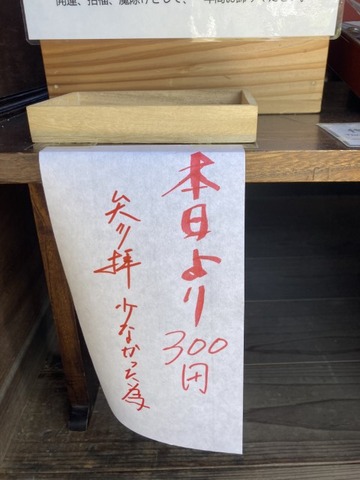 開運、招福、魔除けとして、一年間お飾りください。
本日より
300円
参拝少なかった為